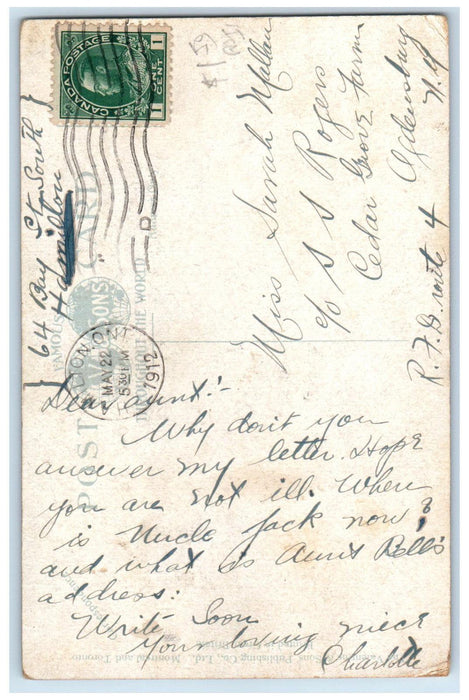 CANADA POSTAGE
1 ONE CENT 1
$1.59
64 Bay St. South
Hamilton
LONDON, ONT.
MAY 22
5 30 PM
1912
POST CARD
FAMOUS
VALENTINE'S
THROUGHOUT THE WORLD
Miss Sarah
c/o S S Rogers
Cedar Grove Farm
Ogdensburg
N.Y
R.F.D. route 4
Dear aunt!-
Why don't you
answer my letter. Hope
you are not ill. Where
is Uncle Jack now?
and what is Aunt Bell's
address:
Write Soon
Your loving niece
Charlotte
Sons Publishing Co., Ltd., Montreal and Toronto
Printed in Great Britain